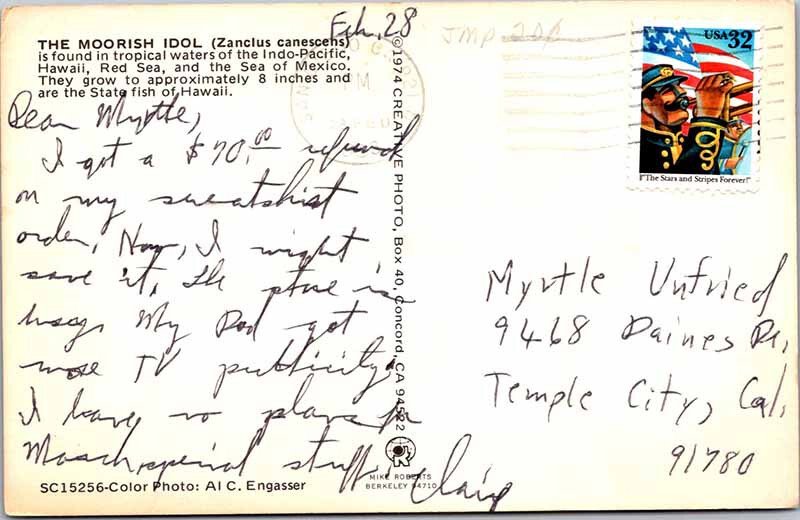 Feb. 28
THE MOORISH IDOL (Zanclus canescens)
is found in tropical waters of the Indo-Pacific,
Hawaii, Red Sea, and the Sea of Mexico.
They grow to approximately 8 inches and
are the State fish of Hawaii.
Dear Myrtle,
I got a $70.00 refund
on my sweatshirt
order. Now, I might
save it. The store is
busy. My Dad got
more TV publicity.
I have no plans for
March, special stuff.
SC15256-Color Photo: Al C. Engasser
©1974 CREATIVE PHOTO, Box 40, Concord, CA 94522
MIKE ROBERTS
BERKELEY 94710
JMP 20¢
USA 32
"The Stars and Stripes Forever!"
Myrtle Unfried
9468 Daines Dr.
Temple City, Cal.
91780